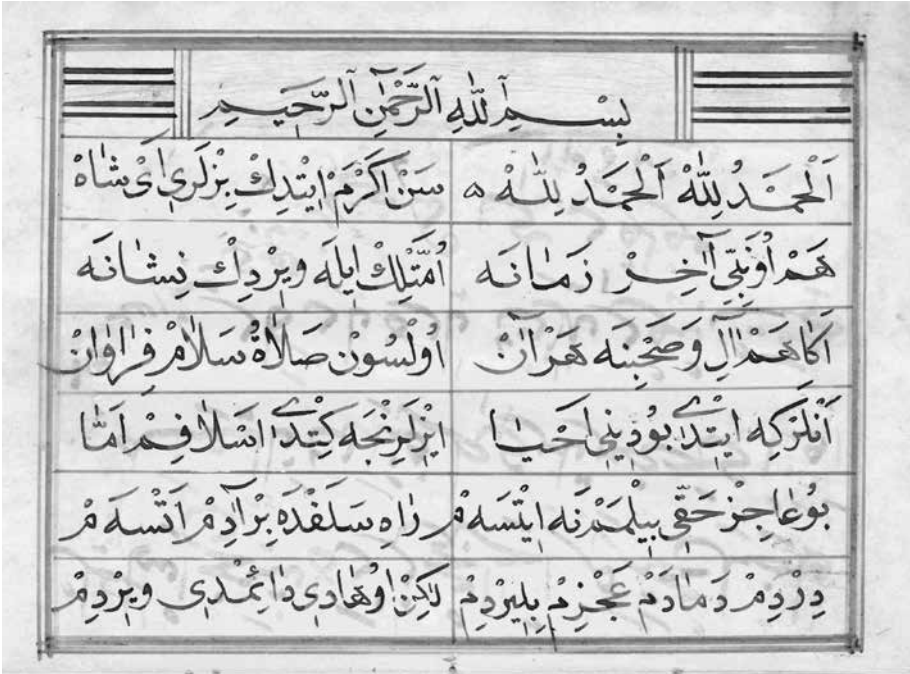 بِسْمِ اللّٰهِ الرَّحْمٰنِ الرَّحِيمِ
اَلْحَمْدُ لِلّٰهْ اَلْحَمْدُ لِلّٰهْ سَنْ اَكْرَمْ اِيتْدِكْ بِزْلَرِي اَىْ شَاهْ
هَمْ اُو نَبِّي آخِرْ زَمَانَه اُمَّتْلِكْ اِيلَه وِيرْدِكْ نِشَانَه
اَكَا هَمْ اٰلِ وَصَحْبِنَه هَرْ اٰنْ اُولْسُونْ صَلَاةْ سَلَامْ فِرَاوَانْ
اَنْلَرْكِه اِيتْدِى بُو دِينِي اِحْيَا اِيزْلَرِنْجَه كِتْدِى اَسْلَافِمْ اَمَّا
بُو عَاجِزْ حَقِّي بِيلْمَمْ نَه اِيتْسَه مْ رَاهِ سَلَفْدَه بِرْ آدِمْ اَتْسَه مْ
دِرْدِمْ دَمَادَمْ عَجْزِمْ بِلِيرْدِمْ لٰكِنْ اُو هَادِى دَائِمْدِى وِيرْدِمْ